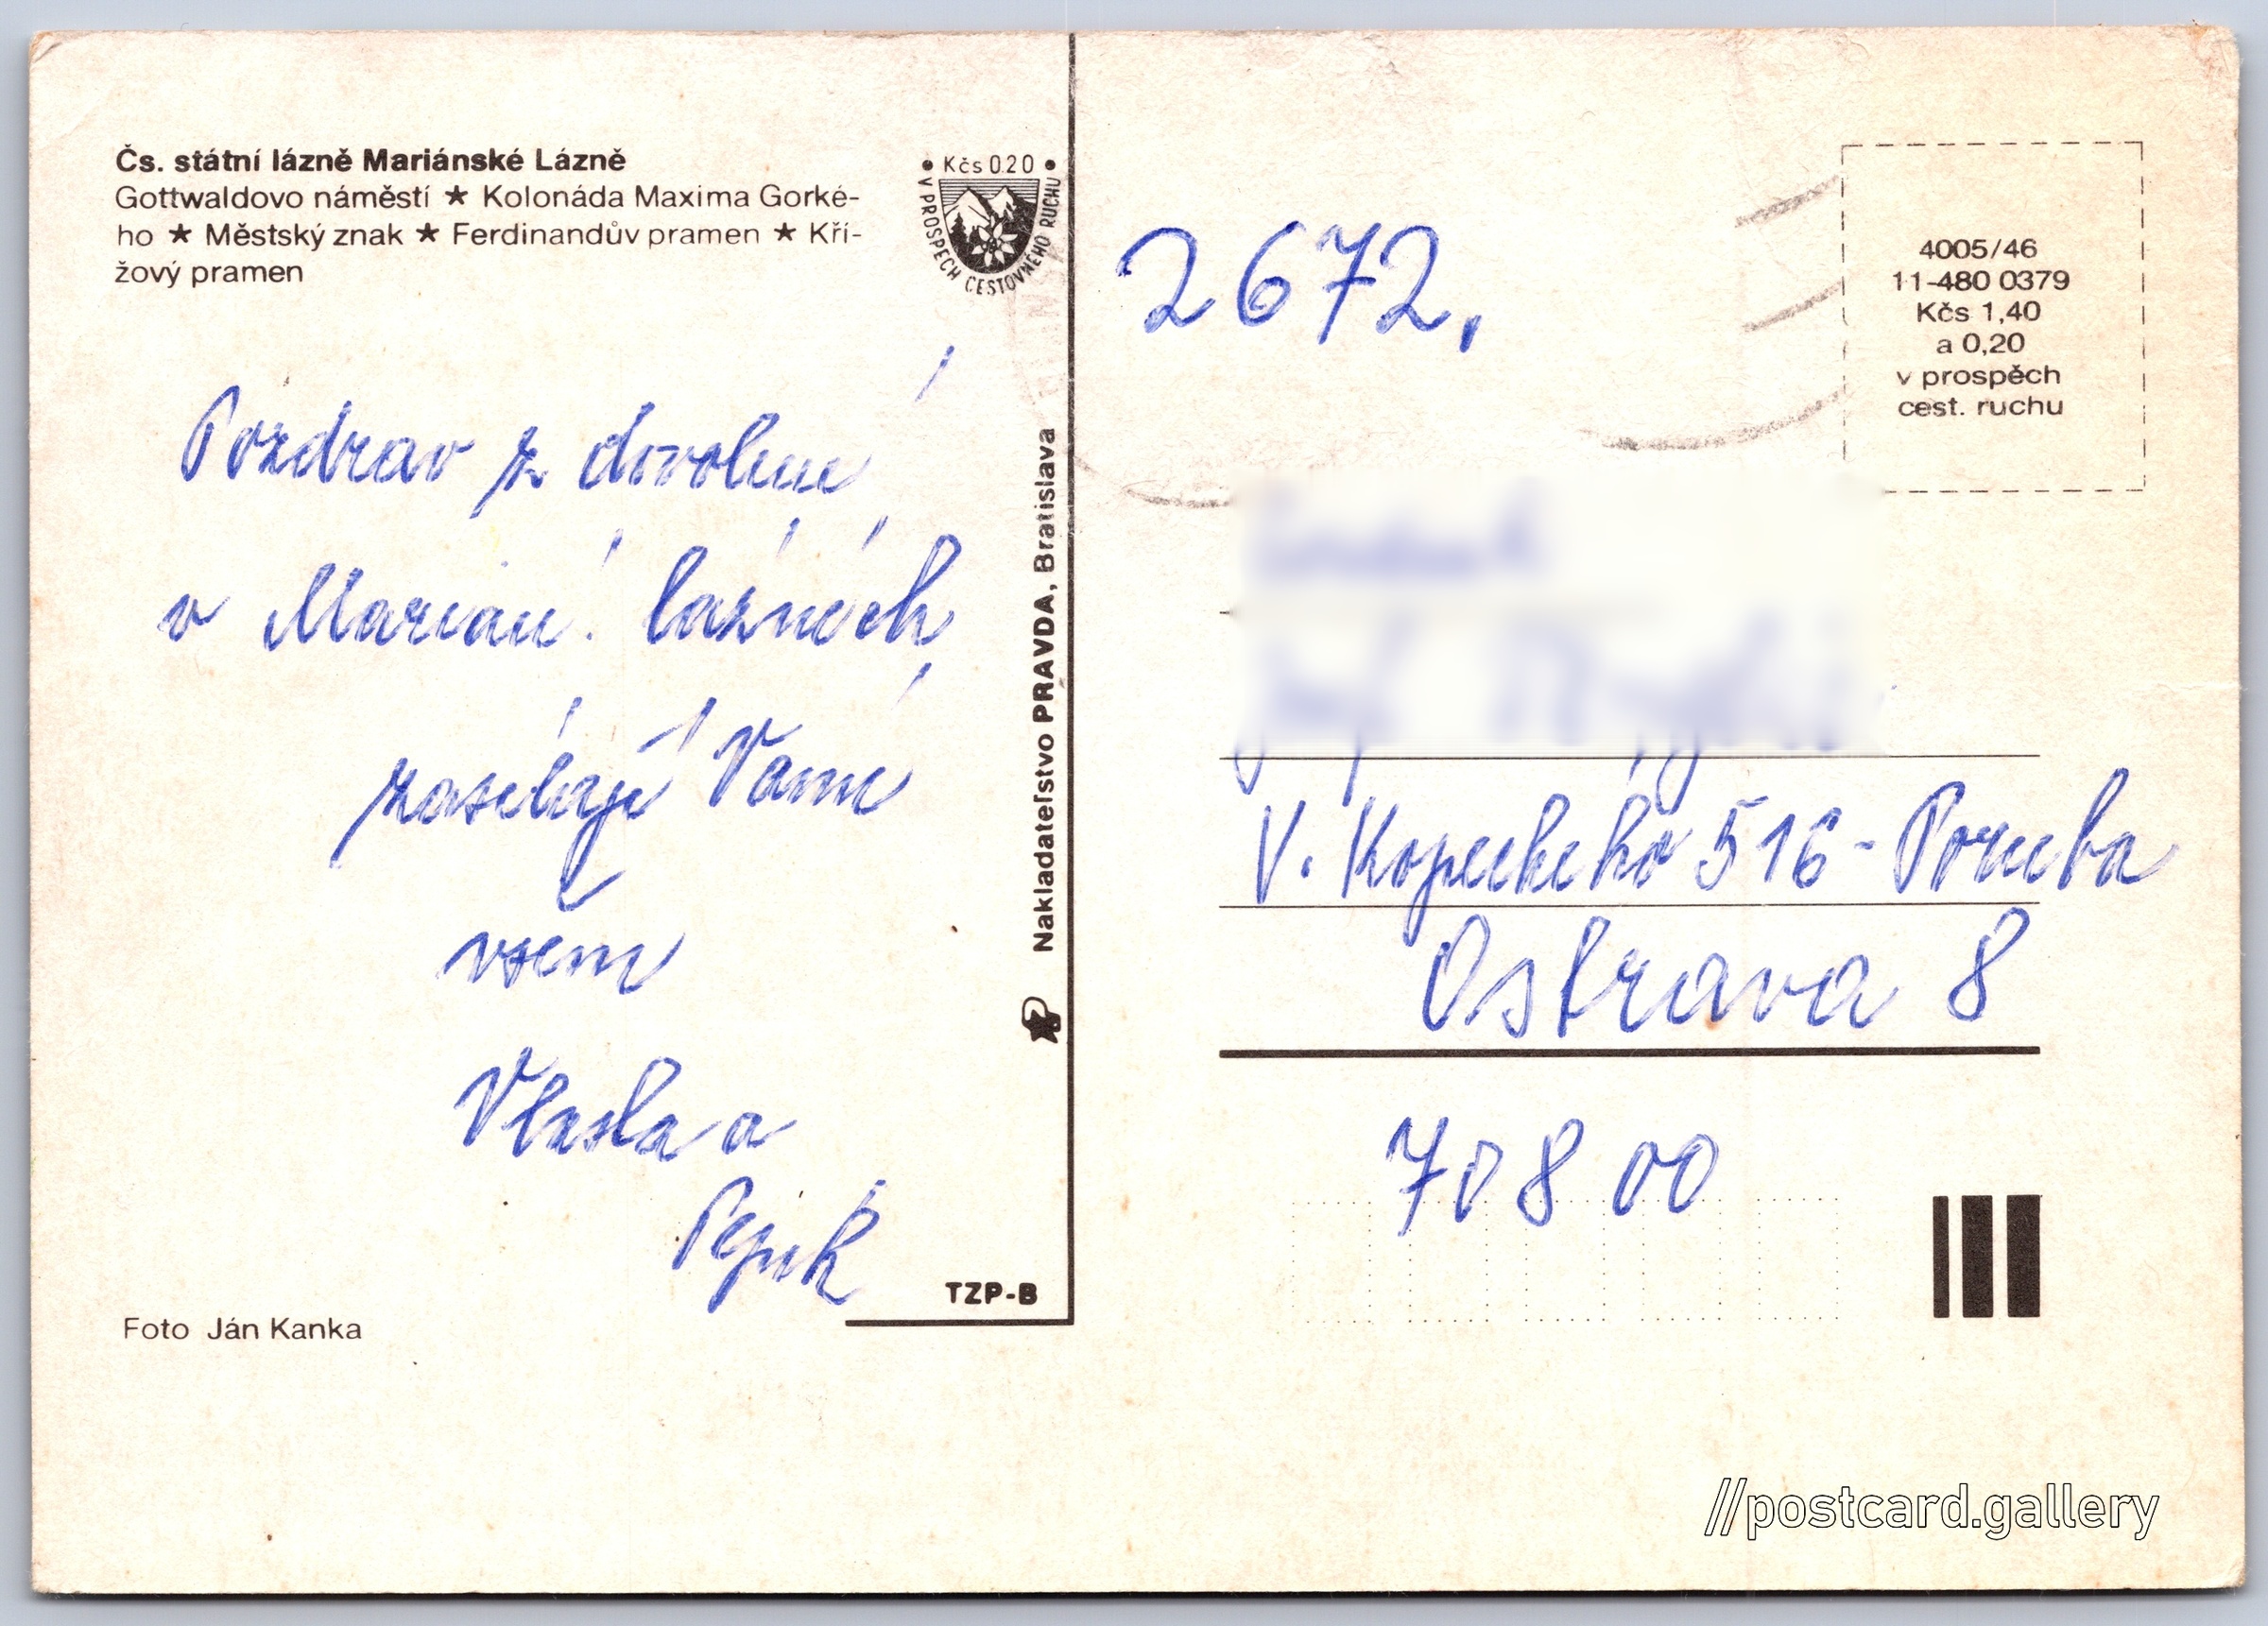 Čs. státní lázně Mariánské Lázně
Gottwaldovo náměstí ★ Kolonáda Maxima Gorké-
ho ★ Městský znak ★ Ferdinandův pramen ★ Kří-
žový pramen
• Kčs 0.20 •
V PROSPĚCH CESTOVNÉHO RUCHU
Pozdrav z dovolené
v Marián. lázních
zasílají Vám
všem
Vlasta a
Pepík
Foto Ján Kanka
TZP-B
Nakladateľstvo PRAVDA, Bratislava
2672,
4005/46
11-480 0379
Kčs 1,40
a 0,20
v prospěch
cest. ruchu
V. Kopeckého 516 - Poruba
Ostrava 8
708 00
//postcard.gallery